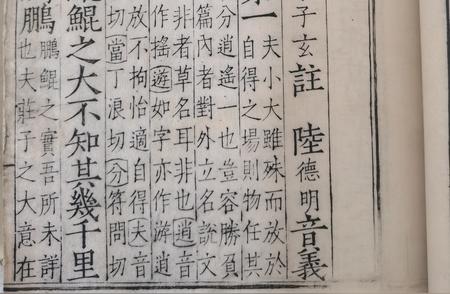 子玄註 陸德明音義
一 夫小大雖殊而放於
自得之場則物任其
分逍遙一也豈容勝負
篇內者對外立名說文
非者草名耳非也逍音
作搖遊如字亦作游逍
放不拘怡適自得夫音
當丁浪切分符問切
鯤之大不知其幾千里
鵬 鵬鯤之實吾所未詳
也夫莊子之大意在